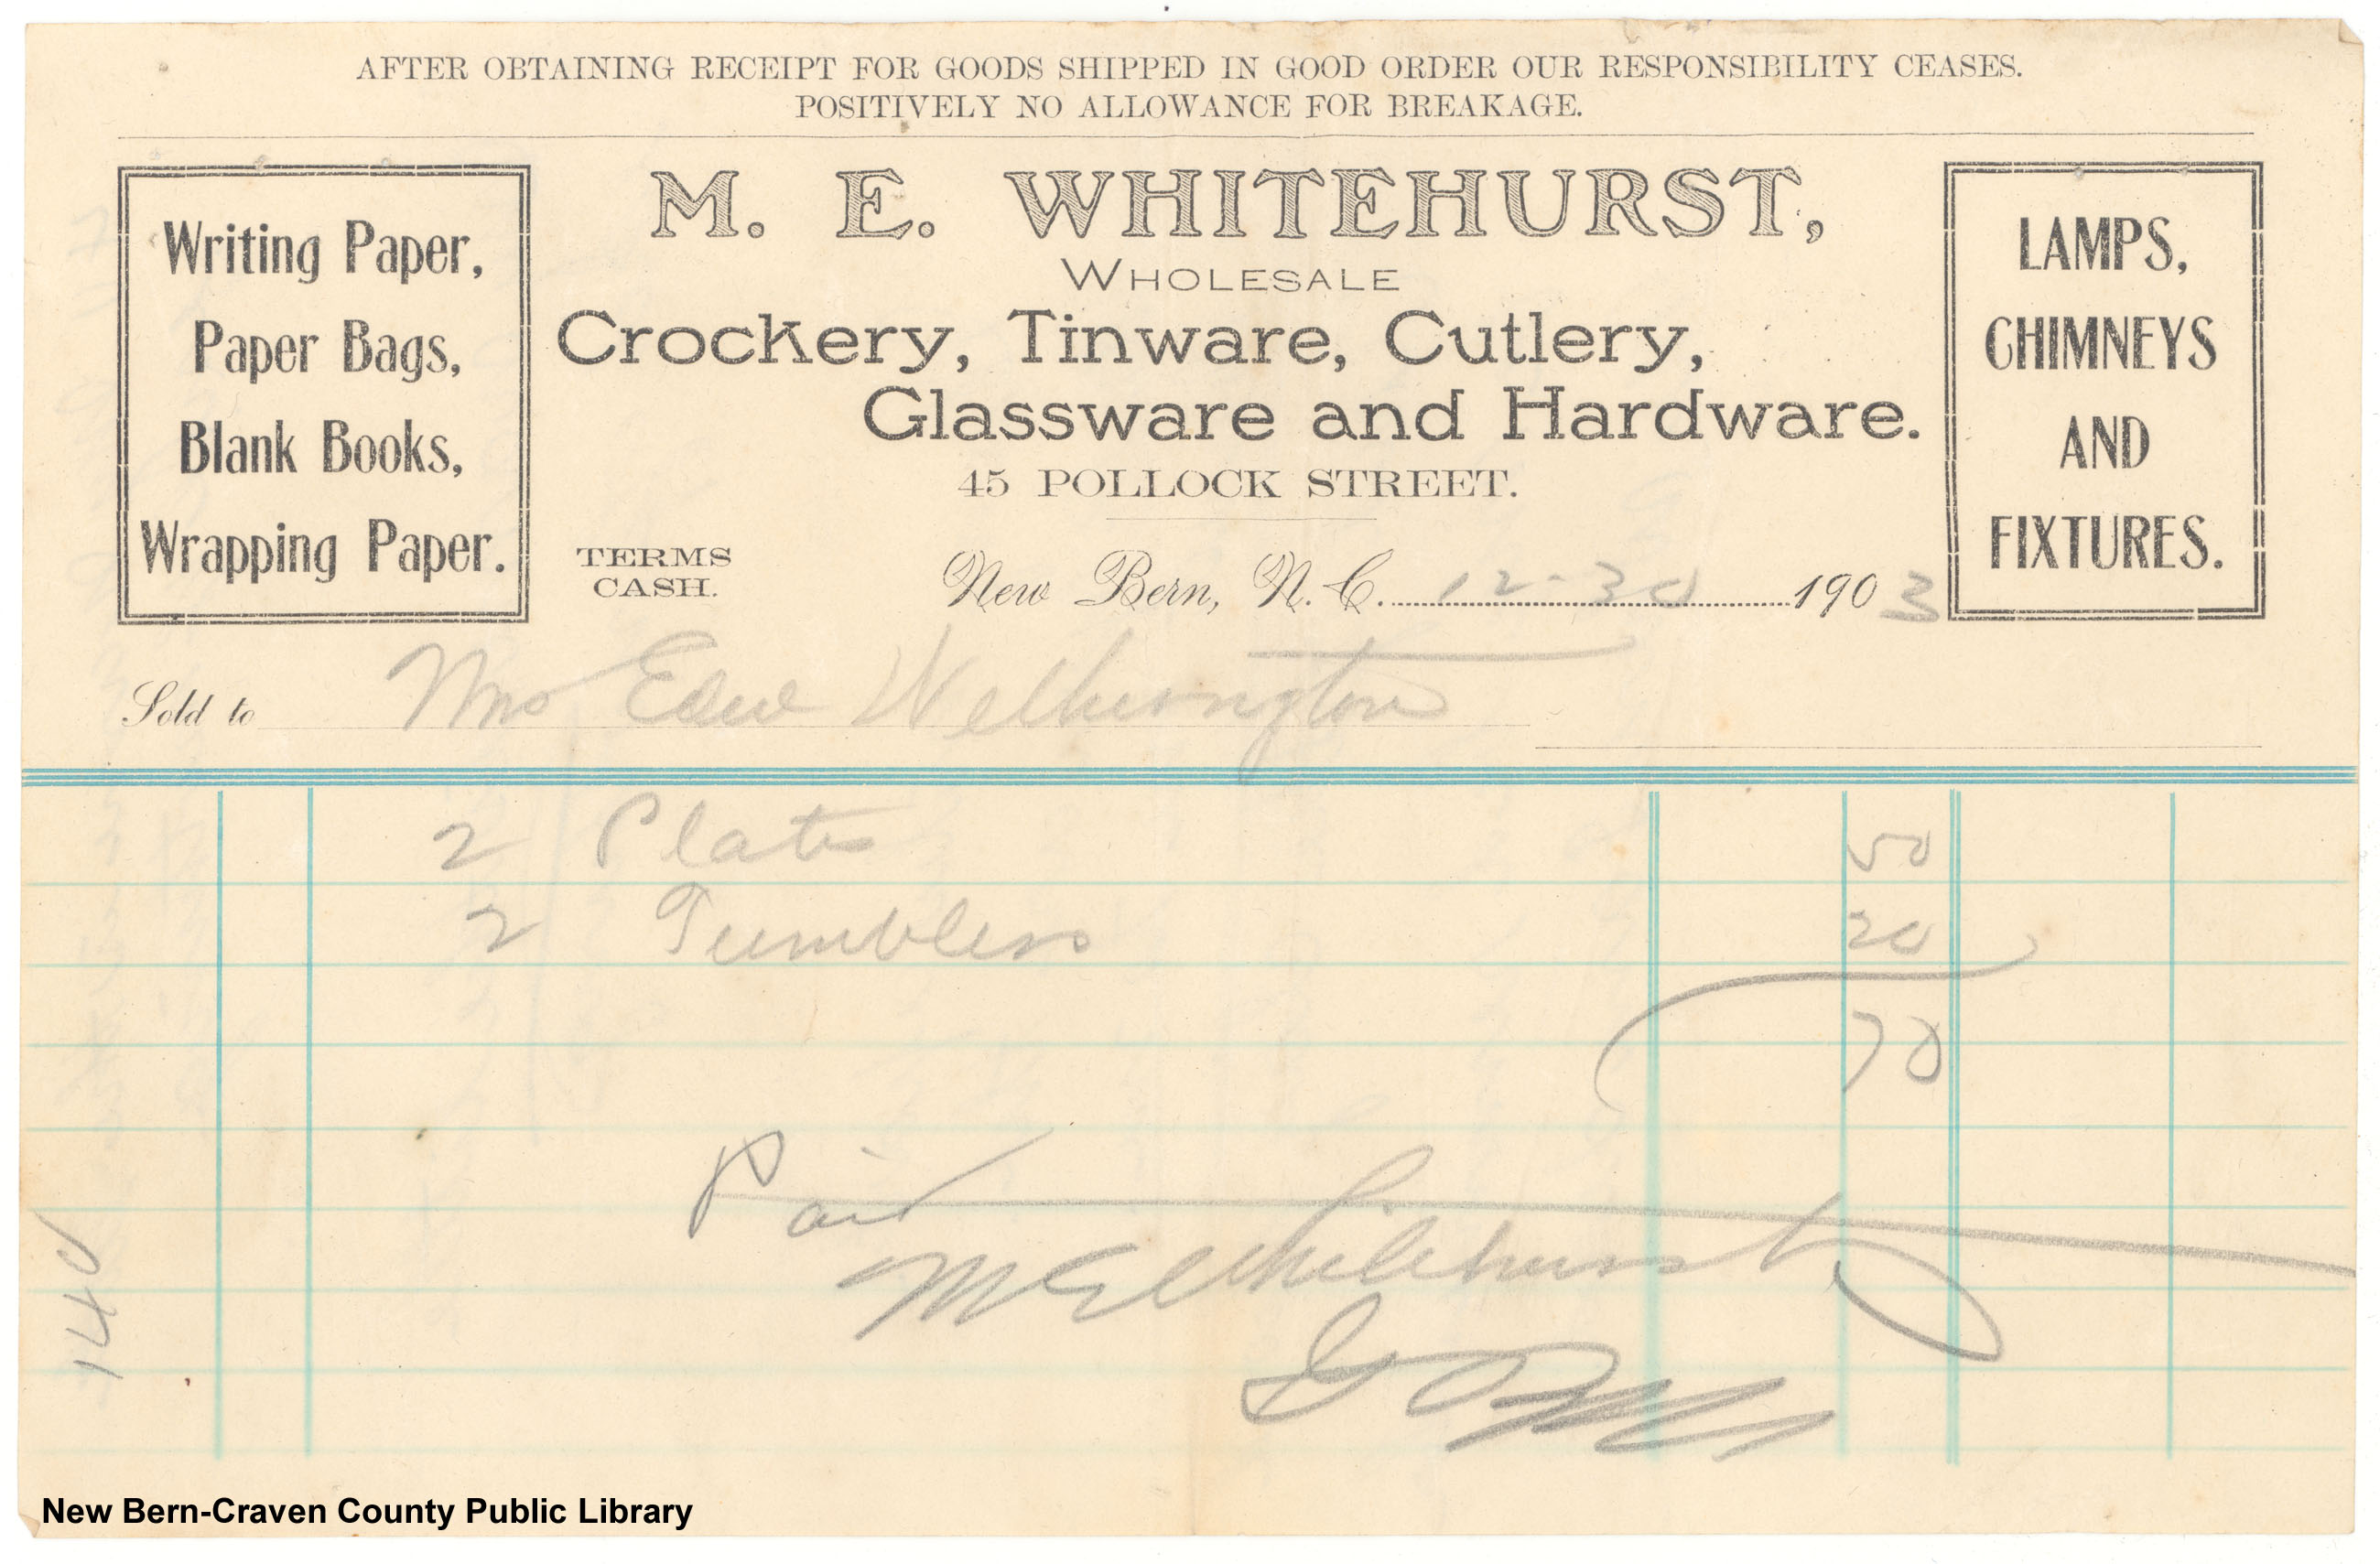 AFTER OBTAINING RECEIPT FOR GOODS SHIPPED IN GOOD ORDER OUR RESPONSIBILITY CEASES.
POSITIVELY NO ALLOWANCE FOR BREAKAGE.
Writing Paper,
Paper Bags,
Blank Books,
Wrapping Paper.
M. E. WHITEHURST,
WHOLESALE
Crockery, Tinware, Cutlery,
Glassware and Hardware.
45 POLLOCK STREET.
LAMPS,
CHIMNEYS
AND
FIXTURES.
TERMS
CASH.
New Bern, N. C. 12-30 1903
Sold to Mrs Edw Wetherington
2 Plates 50
2 Tumblers 20
70
Paid
M E Whitehurst
140
New Bern-Craven County Public Library